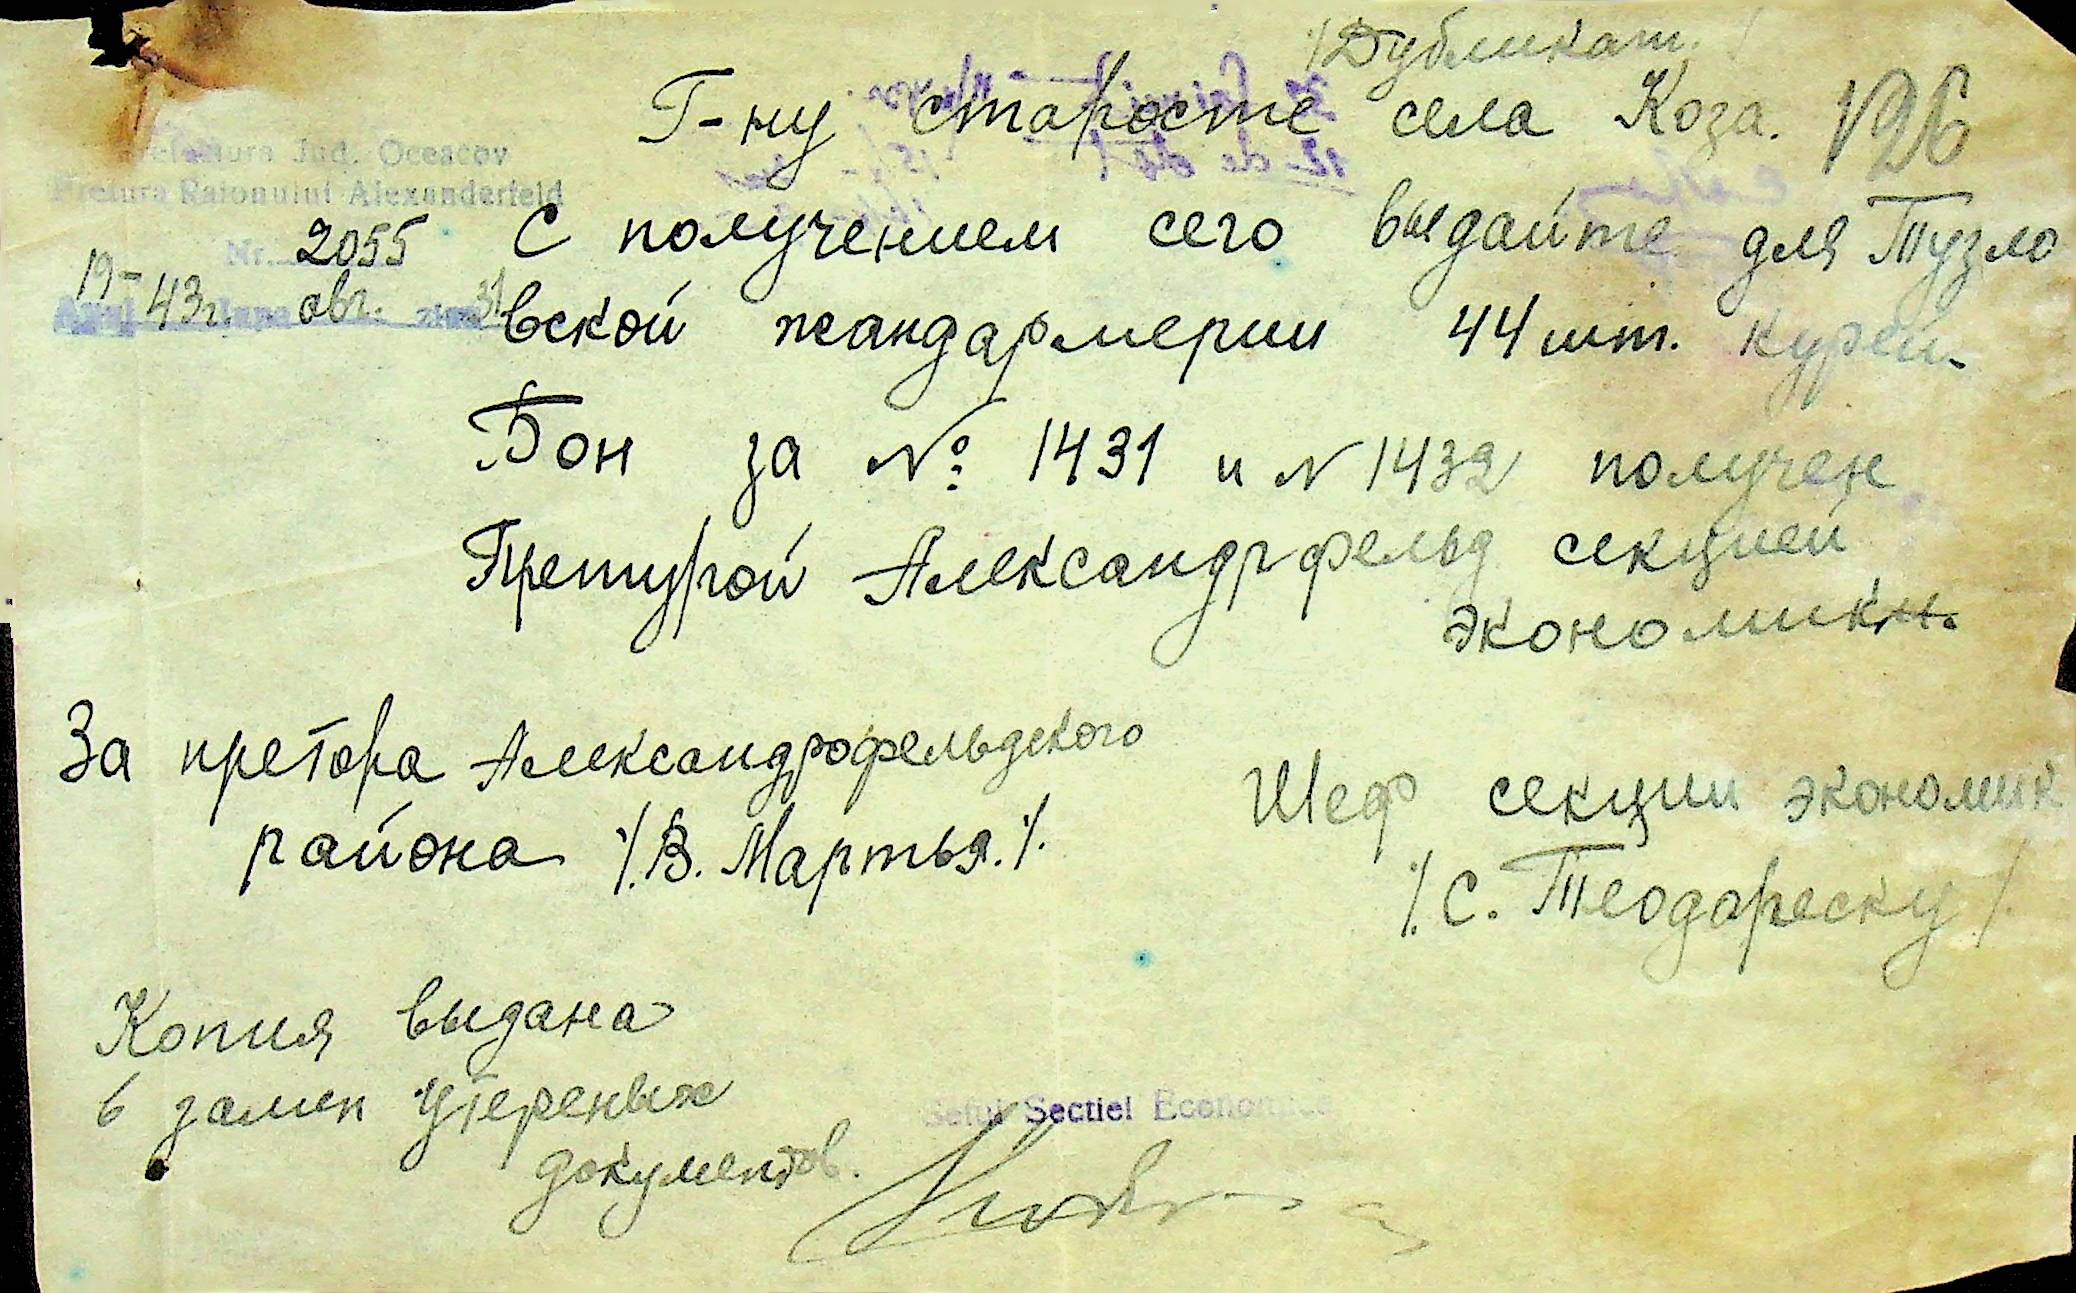 /Дубликат./
Г-ну старосте села Коза. 126
Prefectura Jud. Oceacov
Pretura Raionului Alexanderfeld
Nr. 2055
19-43г. авг. 31
С получением сего выдайте для Тузло
вской жандармерии 44 шт. курей.
Бон за №: 1431 и N 1432 получен
Претурой Александрфельд секцией
экономики.
За претора Александрофельдского
района /.В. Мартья./.
Шеф секции экономик
/.С. Теодареску/.
Копия выдана
в замен утереных
документов.
Seful Sectiei Economice